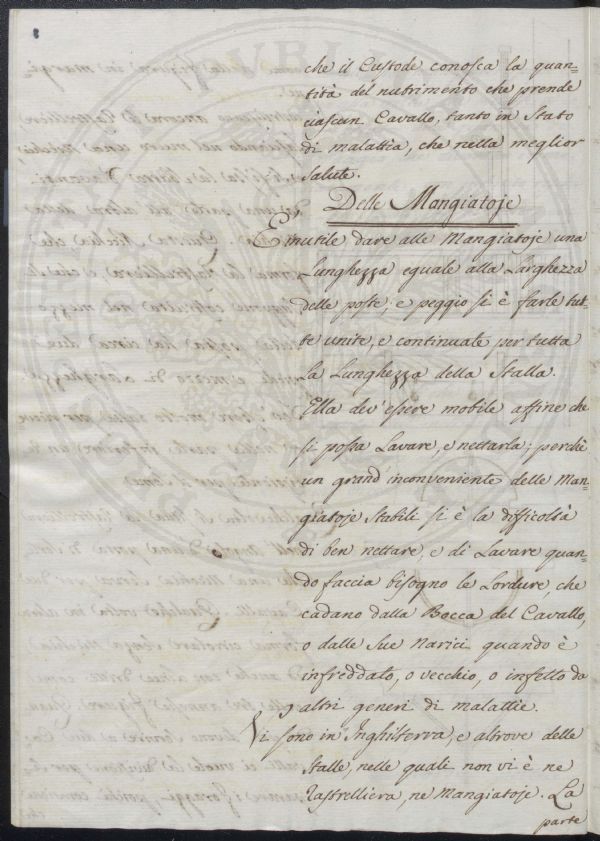 che il Custode conosca la quan=
tità del nutrimento che prende
ciascun Cavallo, tanto in Stato
di malattìa, che nella meglior
Salute.
Delle Mangiatoje
È inutile dare alle Mangiatoje una
Lunghezza eguale alla Larghezza
delle poste, e peggio si è farle tut=
te unite, e continuate per tutta
la Lunghezza della Stalla.
Ella dev'essere mobile affine che
si possa Lavare, e nettarla; perchè
un grand'inconveniente delle Man=
giatoje Stabili si è la difficoltà
di ben nettare, e di Lavare quan=
do faccia bisogno le Lordure, che
cadano dalla Bocca del Cavallo,
o dalle Sue Narici quando è
infreddato, o vecchio, o infetto da
altri generi di malattie.
Vi sono in Inghilterra, e altrove delle
Stalle, nelle quali non vi è ne
Rastrelliera, ne Mangiatoje. La
parte